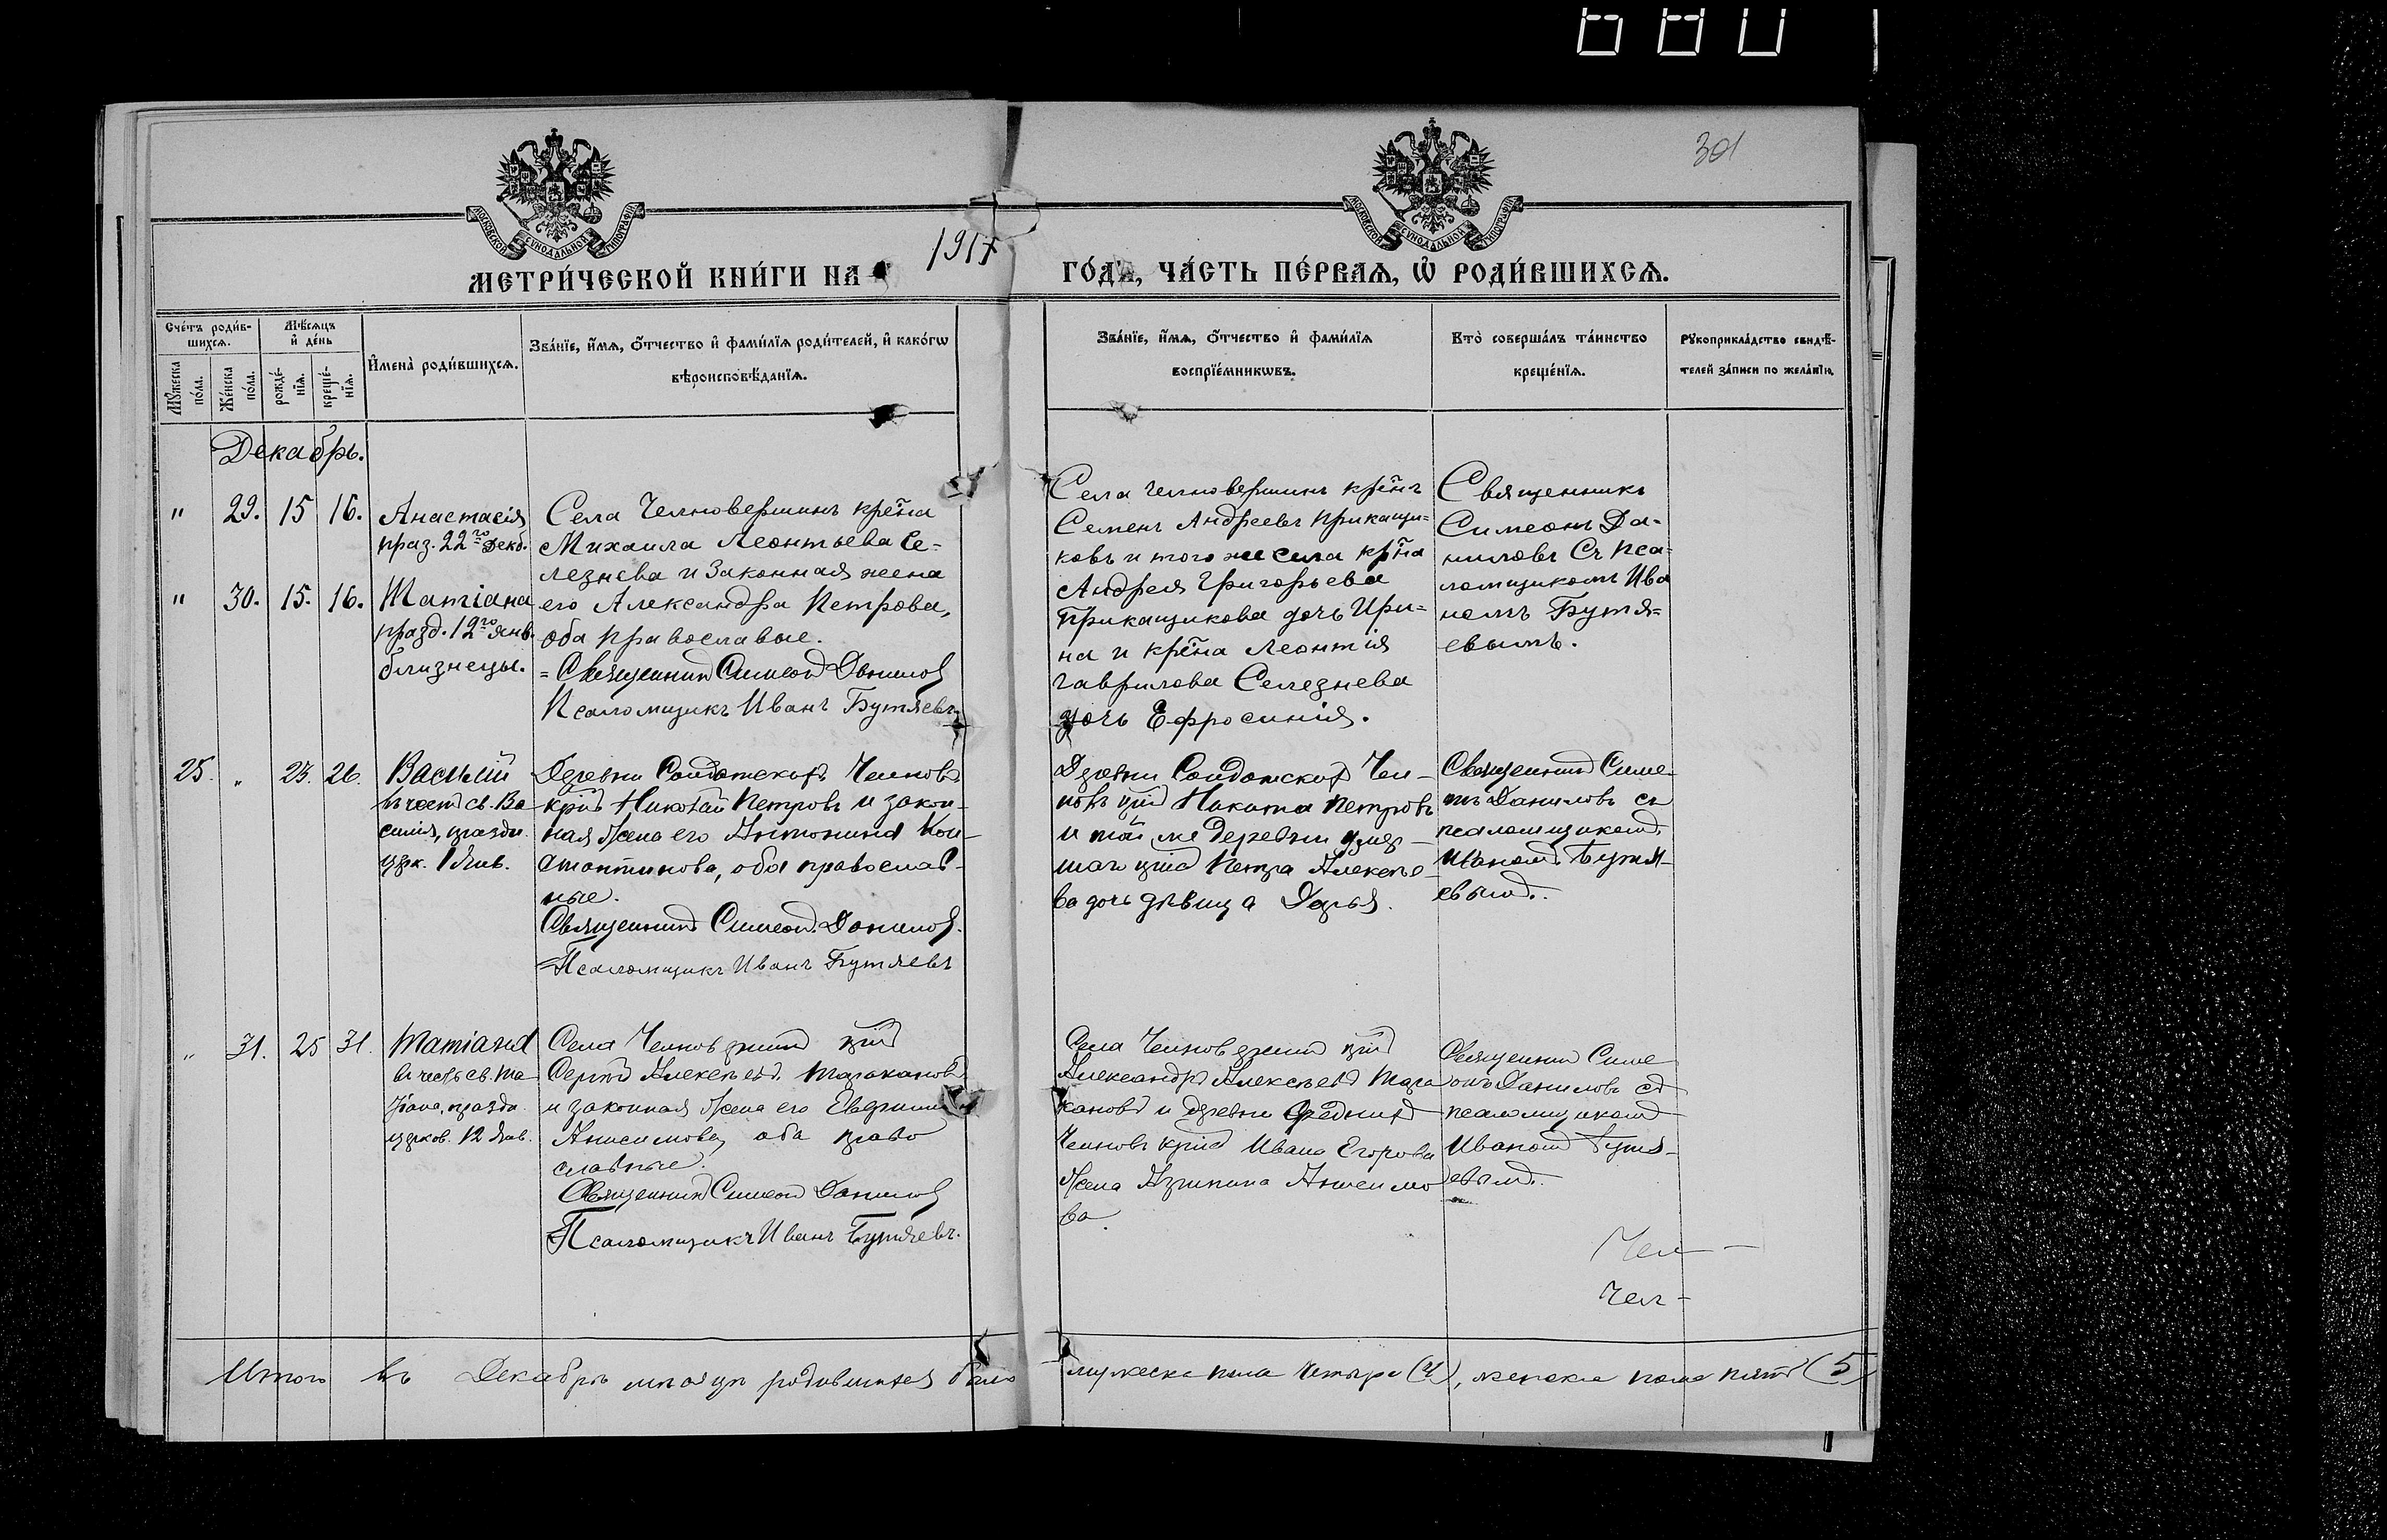 301
МОСКОВСКОЙ СѴНОДАЛЬНОЙ ТИПОГРАФІИ
МОСКОВСКОЙ СѴНОДАЛЬНОЙ ТИПОГРАФІИ
МЕТРИ́ЧЕСКОЙ КНИ́ГИ НА 1917 ГО́ДЪ, ЧА́СТЬ ПЕ́РВАѦ, Ѽ РОДИ́ВШИХСѦ.
Сче́тъ роди́в-
шихсѧ.
Мꙋ́жеска
по́ла.
Же́нска
по́ла.
Мѣ́сѧцъ
и҆ де́нь
рожде́-
нїѧ.
креще́-
нїѧ.
И҆мена̀ роди́вшихсѧ.
Зва́нїе, и҆́мѧ, ѻ҆́тчество и҆ фами́лїѧ роди́телей, и҆ како́гѡ
вѣроисповѣ́данїѧ.
Зва́нїе, и҆́мѧ, ѻ҆́тчество и҆ фами́лїѧ
воспрїе́мникѡвъ.
Кто̀ соверша́лъ та́инство
креще́нїѧ.
Рꙋкоприкла́дство свидѣ́-
телей за́писи по жела́нїю.
Декабрь.
" 29. 15 16.
Анастасія
праз. 22го Декб.
" 30. 15. 16.
Татіана
празд. 12го Янв.
близнецы.
Села Челновершинъ кре̃на
Михаила Леонтьева Се-
лезнева и Законная жена
его Александра Петрова,
оба православые.
Священникъ Симеонъ Даниловъ
Псаломщикъ Иванъ Бутяевъ.
Села Челновершинъ крѣ̃нъ
Семенъ Андреевъ Прикащи=
ковъ и того же села кре̃на
Андрея Григорьева
Прикащикова дочь Ири=
на и кре̃на Леонтія
Гаврилова Селезнева
дочь Ефросинія.
Священникъ
Симеонъ Да-
ниловъ Съ Пса=
ломщикомъ Ива
номъ Бутя=
евымъ.
25. „ 23. 26.
Василій
въ честь св. Ва
силія, праздн.
церк. 1 Янв.
Деревни Солдатскихъ Челновъ
Николай Петровъ и закон-
ная жена его Антонина Кон-
стантинова, оба православ-
ные.
Священникъ Симеонъ Даниловъ.
Псаломщикъ Иванъ Бутяевъ
Деревни Солдатскихъ Чел-
новъ Никита Петровъ
и той же деревни умер-
шаго Петра Алексѣе-
ва дочь дѣвица Дарья.
Священникъ Симе-
онъ Даниловъ съ
псаломщикомъ
Иваномъ Бутя-
евымъ.
„ 31. 25 31.
Татіана
въ честь св. Та
тіана, праздн.
церков. 12 Янв.
Села Челновершинъ
Сергѣй Алексѣевъ Таракановъ
и законная жена его
Анисимова, оба право
славные.
Священникъ Симеонъ Даниловъ
Псаломщикъ Иванъ Бутяевъ.
Села Челновершинъ
Александръ Алексѣевъ Тара
кановъ и деревни Среднихъ
Челновъ Ивана Егорова
жена Анисимо
ва.
Священникъ Симе
онъ Даниловъ съ
псаломщикомъ
Иваномъ Бутя-
евымъ.
Чел -
Чел -
Итого въ Декабрѣ мѣсяцѣ родившихся было мужеска пола четыре (4), женска пола пять (5)